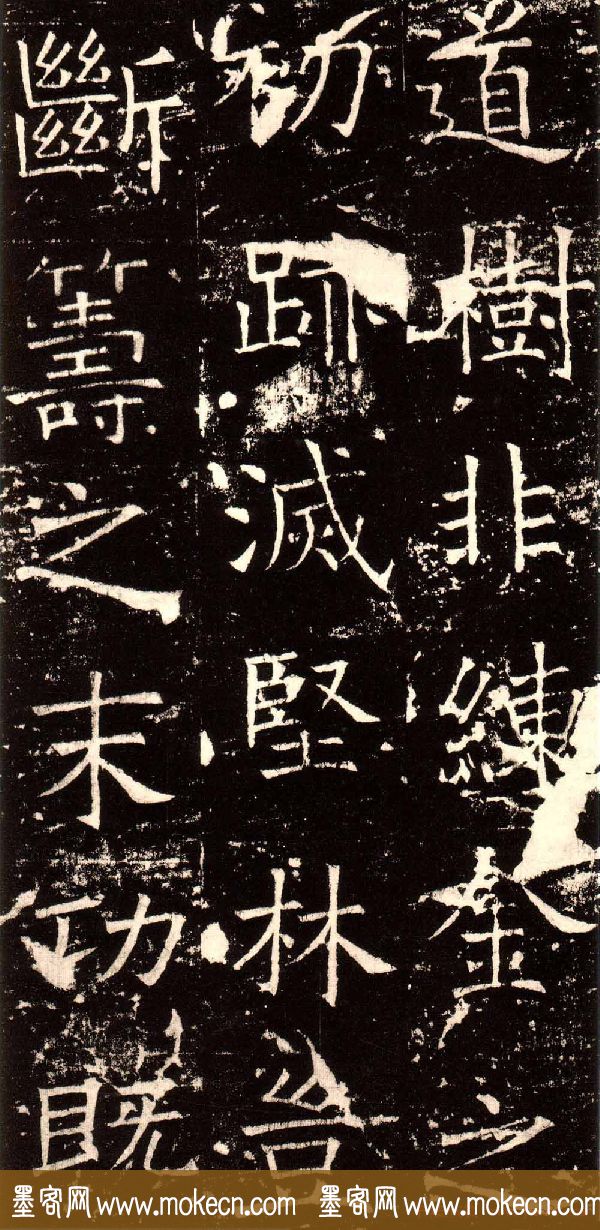 道樹非練金之
初跡滅堅林豈
斷籌之末功既
墨客网 www.mokecn.com 墨客网 www.mokecn.com